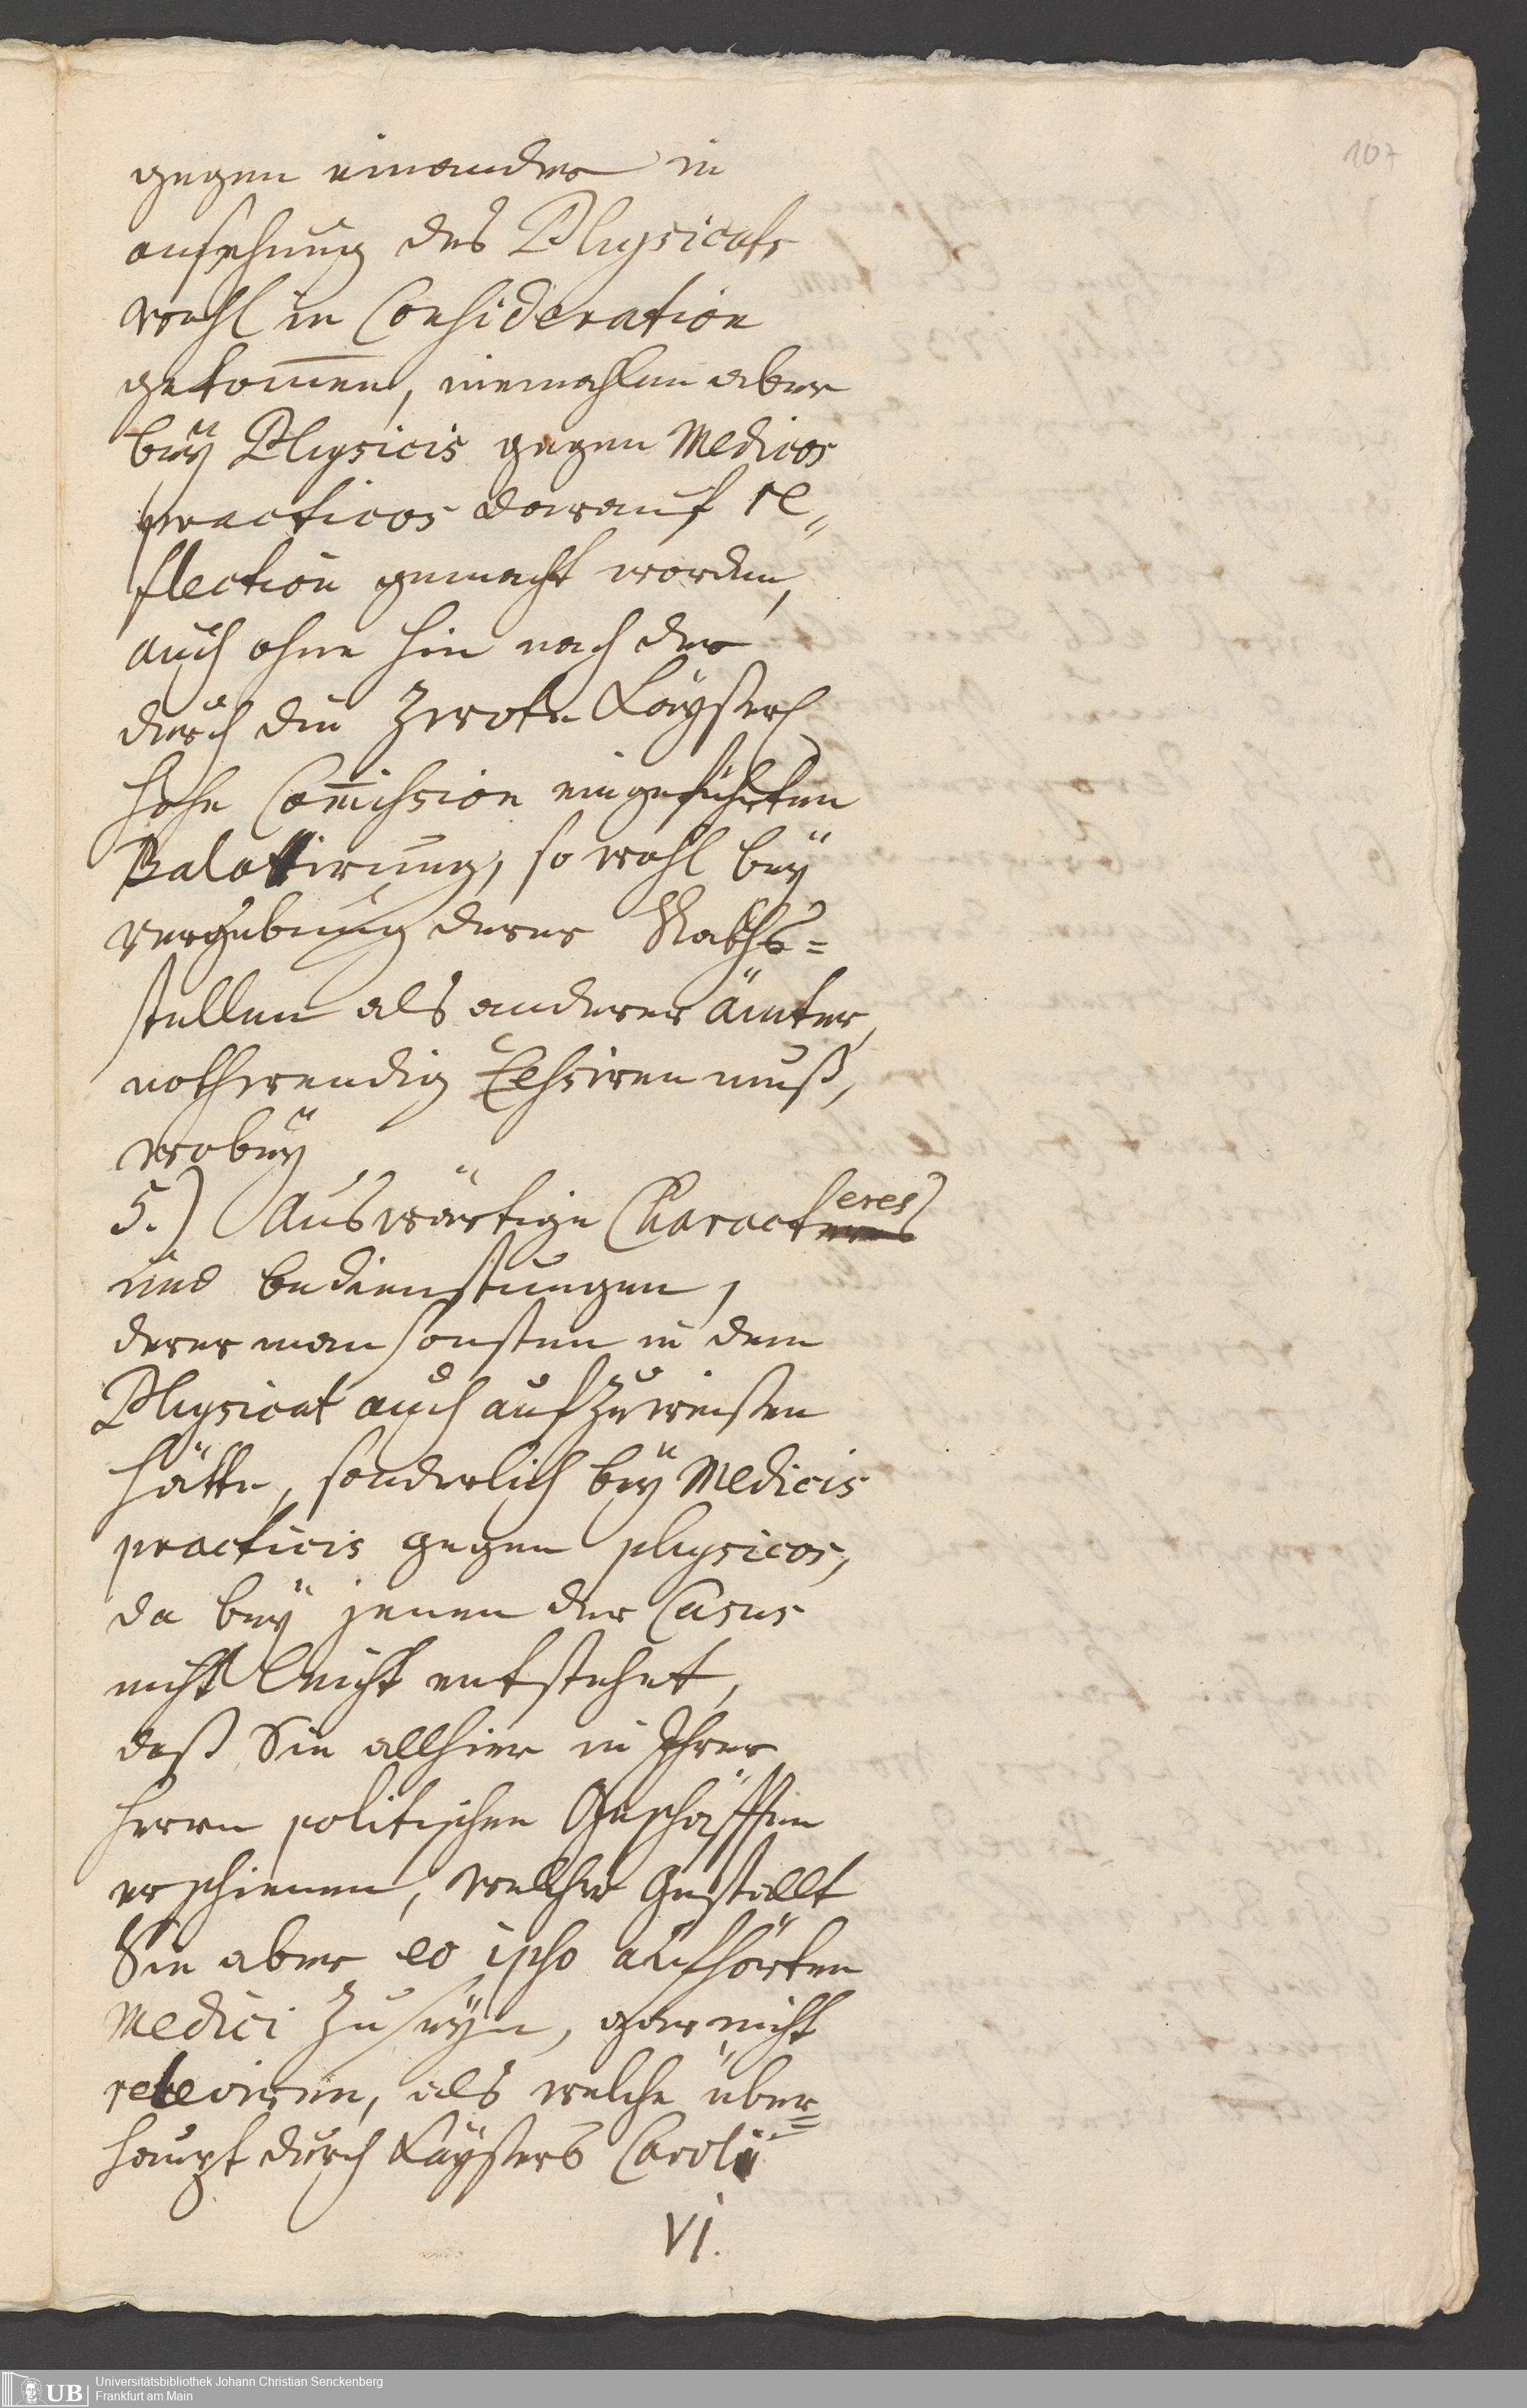 107
gegen einander in
ansehung des Physicats
wohl in Consideration
gekom̄en, niemahlen aber
beÿ Physicis gegen Medicos
practicos darauf re„
flection gemacht worden,
auch ohne hin nach der
durch die Zwote Kaÿserl
hohe Com̄ission eingeführten
Balottirung, so wohl beÿ
vergebung derer Raths=
stellen als anderer ämter,
nothwendig Cessiren muß,
wobeÿ
5.) Auswärtige Characteres
und bedienstungen,
derer man sonsten in dem
Physicat auch aufzuweissen
hätte, sonderlich beÿ Medicis
practicis gegen physicos,
da beÿ jenen der Casus
nicht leicht entstehet,
daß Sie allhier in Ihrer
Herrn politischen Geschäfften
erschienen, welcher Gestallt
Sie aber eo ipso aufhörten
Medici zu seÿn, gar nicht
releviren, als welche über=
haupt durch Kaÿsers Caroli
VI.
Universitätsbibliothek Johann Christian Senckenberg
Frankfurt am Main
UB